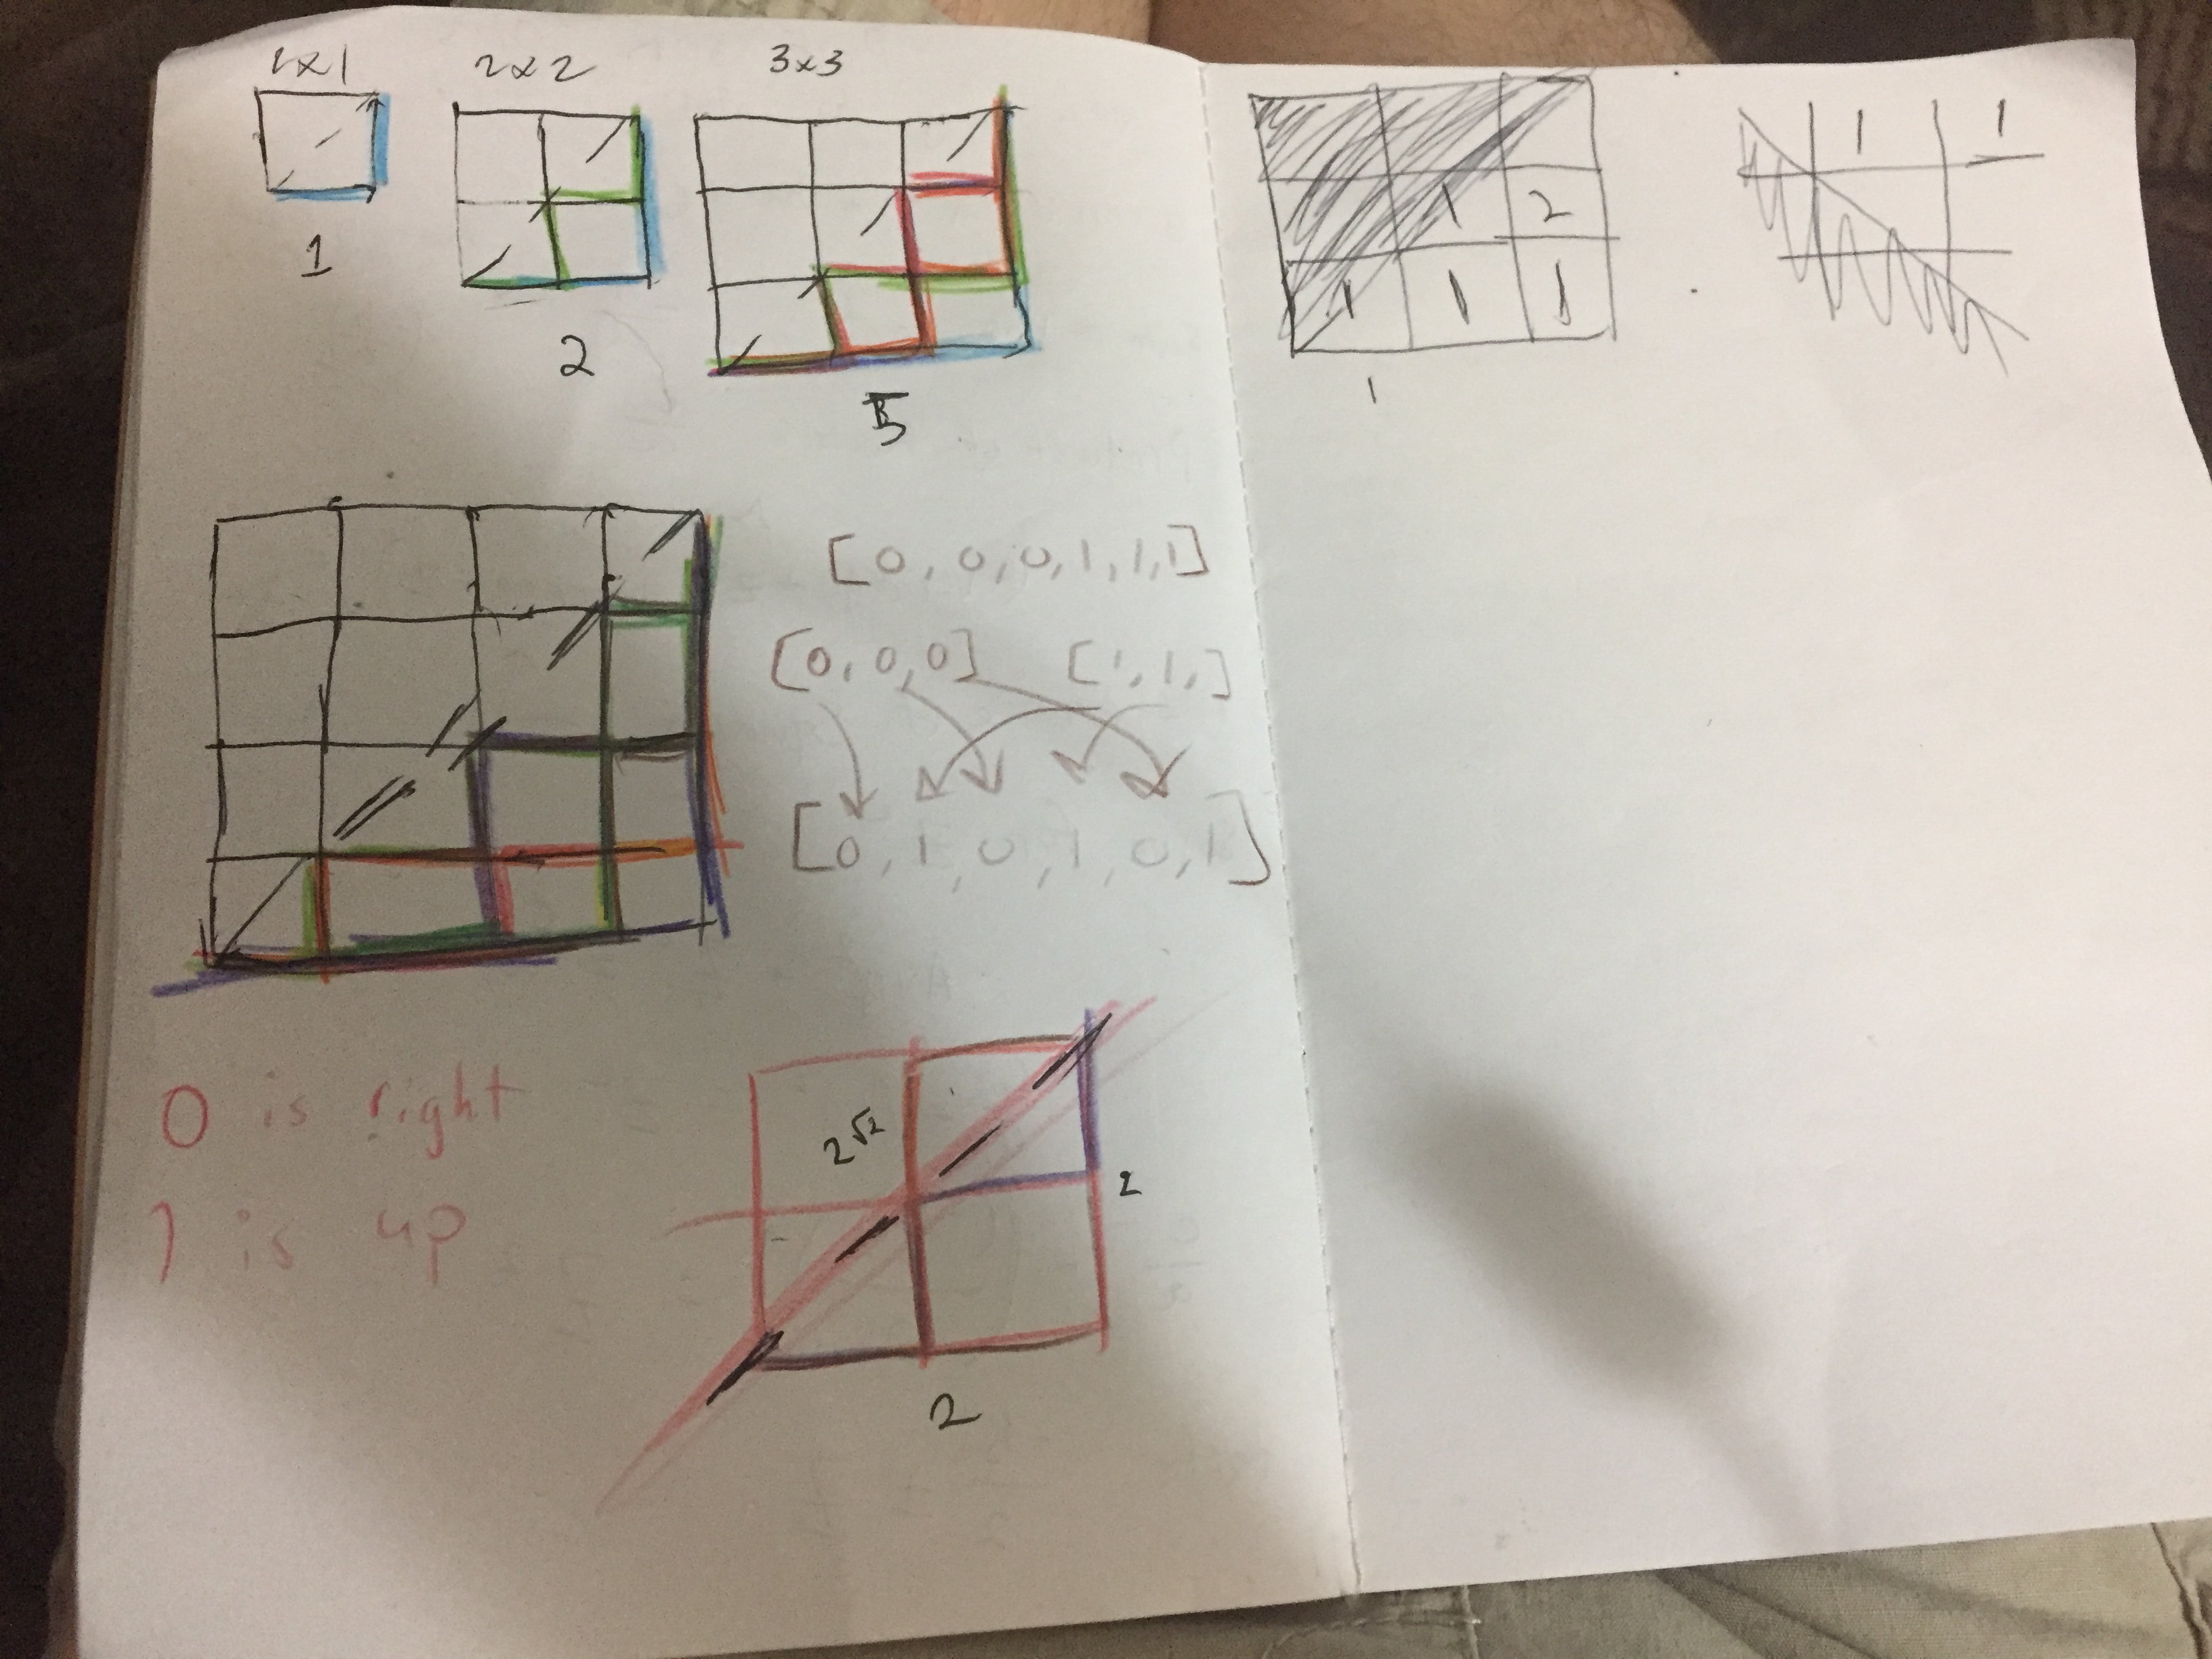 1x1
2x2
3x3
1
2
5
[0,0,0,1,1,1]
[0,0,0] [1,1,]
[0,1,0,1,0,1]
0 is right
1 is up
2√2
2
2
1
1
1
1
2
1
1
1